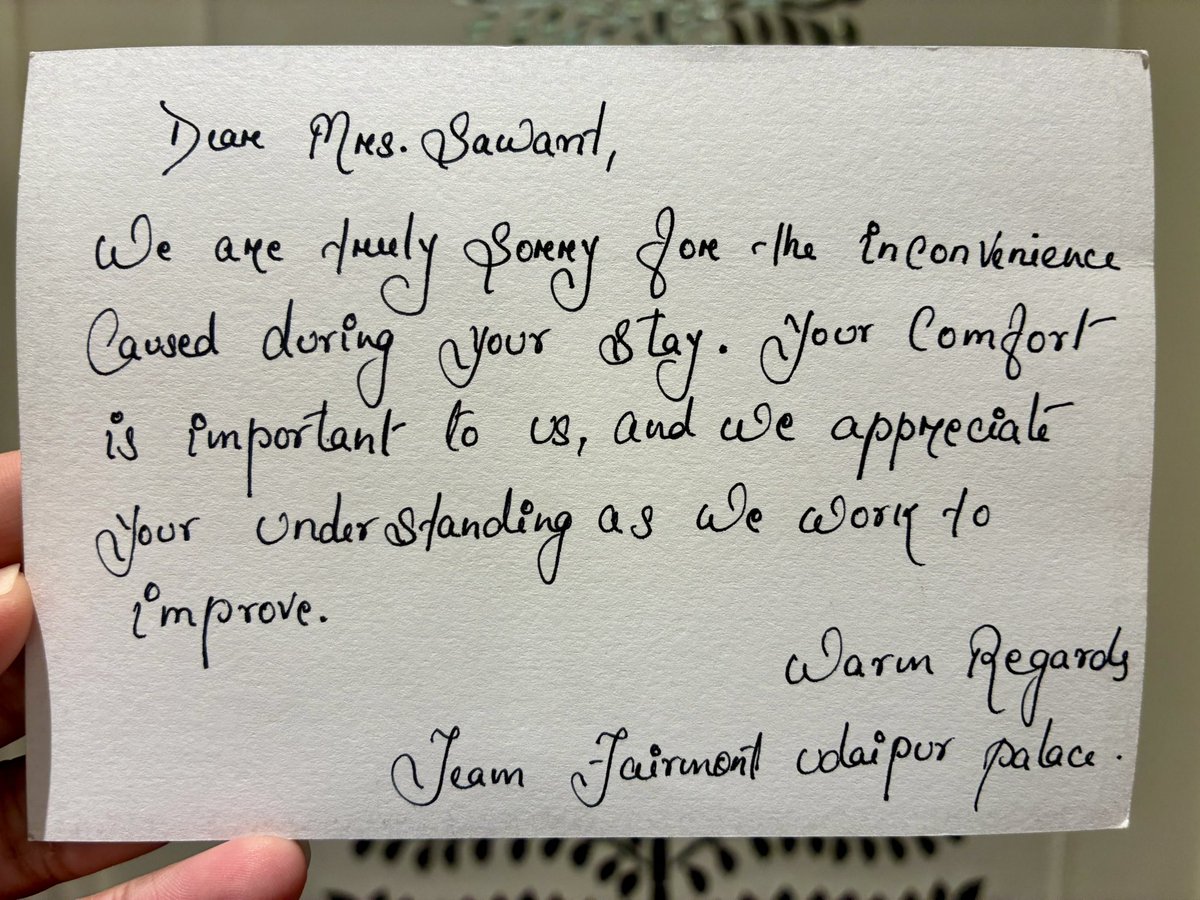 Dear Mrs. Sawant,
We are truly sorry for the inconvenience
Caused during your stay. Your Comfort
is important to us, and we appreciate
Your understanding as we work to
improve.
Warm Regards
Team Fairmont Udaipur palace.